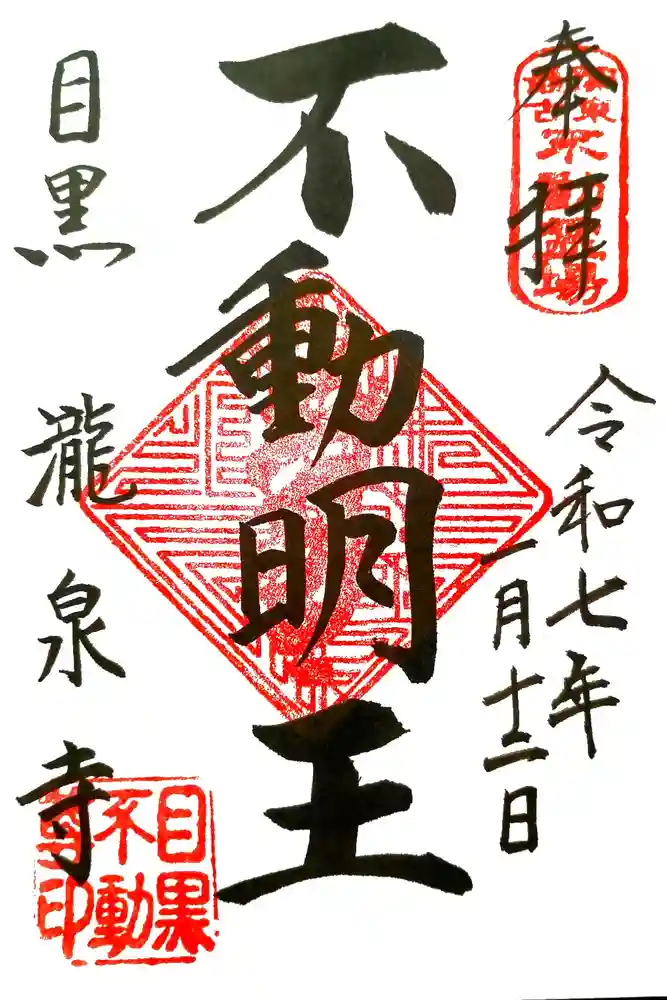 奉拝
令和七年
一月十二日
不動明王
目黒
瀧泉寺
目黒
不動
尊印